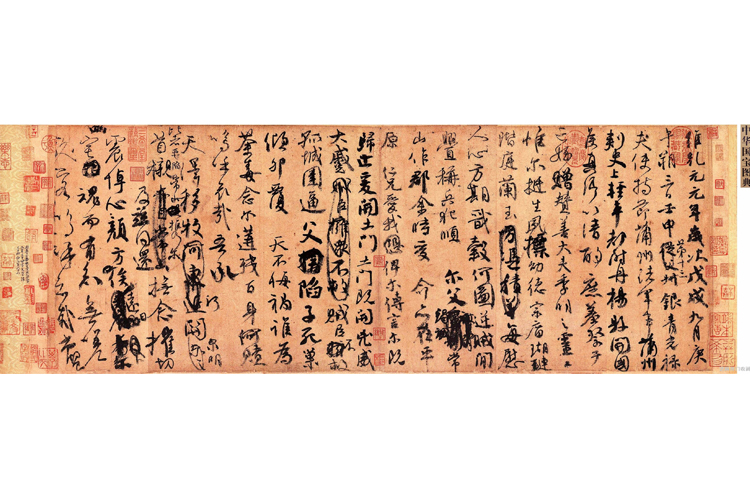 維乾元元年歲次戊戌九月庚
午朔三日壬申第十三叔銀青光祿
夫使持節蒲州諸軍事蒲州
刺史上輕車都尉丹楊縣開國
侯真卿以清酌庶羞祭于
亡姪贈贊善大夫季明之靈曰
惟爾挺生夙標幼德宗廟瑚璉
階庭蘭玉方憑積善每慰
人心方期戩穀何圖逆賊閒
釁稱兵犯順爾父竭誠常
山作郡余時受命亦在平
原仁兄愛我俾爾傳言爾既
歸止爰開土門土門既開凶威
大蹙賊臣擁眾不救賊臣不救
孤城圍逼父陷子死巢
傾卵覆天不悔禍誰為
荼毒念爾遘殘百身何贖
嗚呼哀哉吾承
天澤移牧河關泉明
比者再陷常山攜爾
首櫬及茲同還撫念摧切
震悼心顏方俟
宅魂而有知無嗟
久客嗚呼哀哉尚饗